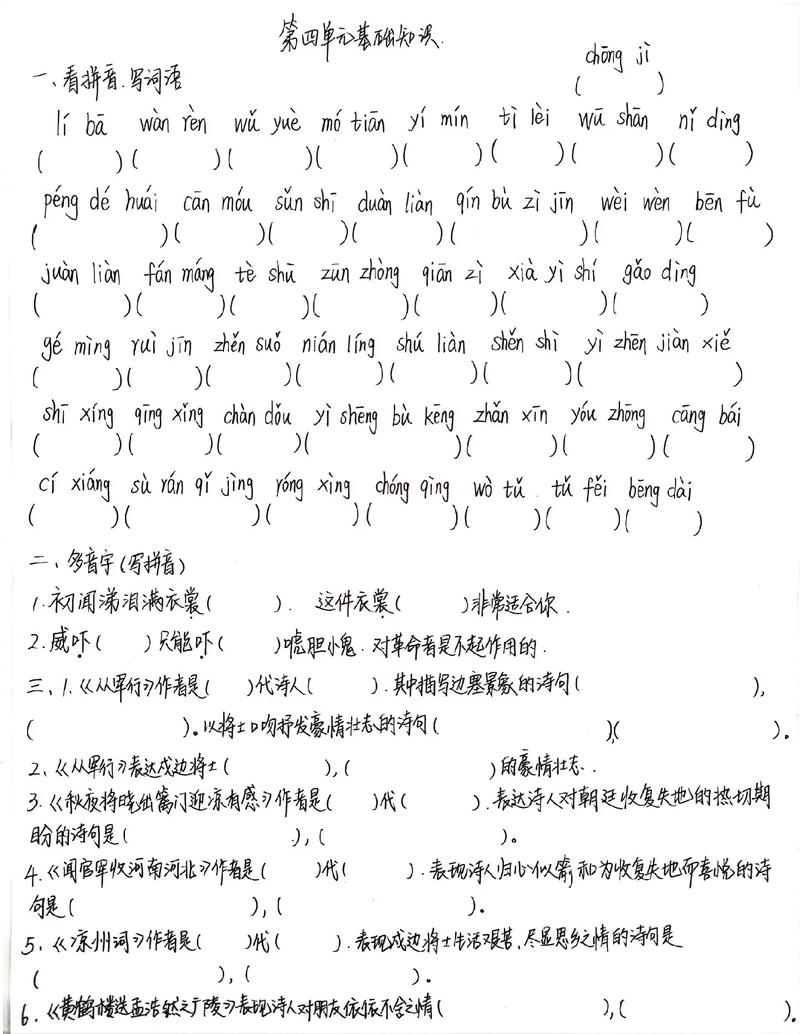 第四单元基础知识.
一、看拼音.写词语
chōng jì
(          )
lí bā   wàn rèn   wǔ yuè   mó tiān   yí mín   tì lèi   wū shān   nǐ dìng
(      )(      )(      )(      )(      )(      )(      )(      )
péng dé huái   cān móu   sǔn shī   duàn liàn   qín bù zì jīn   wèi wèn   bēn fù
(      )(      )(      )(      )(      )(      )(      )
juàn liàn   fán máng   tè shū   zūn zhòng   qiān zì   xià yì shí   gǎo dìng
(      )(      )(      )(      )(      )(      )(      )
gé mìng   ruì jīn   zhěn suǒ   nián líng   shú liàn   shěn shì   yì zhēn jiàn xiě
(      )(      )(      )(      )(      )(      )(      )
shī xíng   qīng xǐng   chàn dǒu   yì shēng bù kēng   zhǎn xīn   yóu zhōng   cāng bái
(      )(      )(      )(      )(      )(      )(      )
cí xiáng   sù rán qǐ jìng   róng xìng   chóng qìng   wò tǔ   tǔ fěi   bēng dài
(      )(      )(      )(      )(      )(      )(      )
二、多音字(写拼音)
1.初闻涕泪满衣裳(      ).   这件衣裳(      )非常适合你.
2.威吓(      )只能吓(      )唬胆小鬼.对革命者是不起作用的.
三、1.《从军行》作者是(      )代诗人(      ).其中描写边塞景象的诗句(      ),
(      )。以将士口吻抒发豪情壮志的诗句(      ),(      )。
2、《从军行》表达戍边将士(      ),(      )的豪情壮志.
3.《秋夜将晓出篱门迎凉有感》作者是(      )代(      ).表达诗人对朝廷收复失地的热切期
盼的诗句是(      ),(      )。
4.《闻官军收河南河北》作者是(      )代(      ).表现诗人归心似箭和为收复失地而喜悦的诗
句是(      ),(      )。
5、《凉州词》作者是(      )代(      ).表现戍边将士生活艰苦,尽显思乡之情的诗句是
(      ),(      )。
6.《黄鹤楼送孟浩然之广陵》表现诗人对朋友依依不舍之情(      ),(      )。